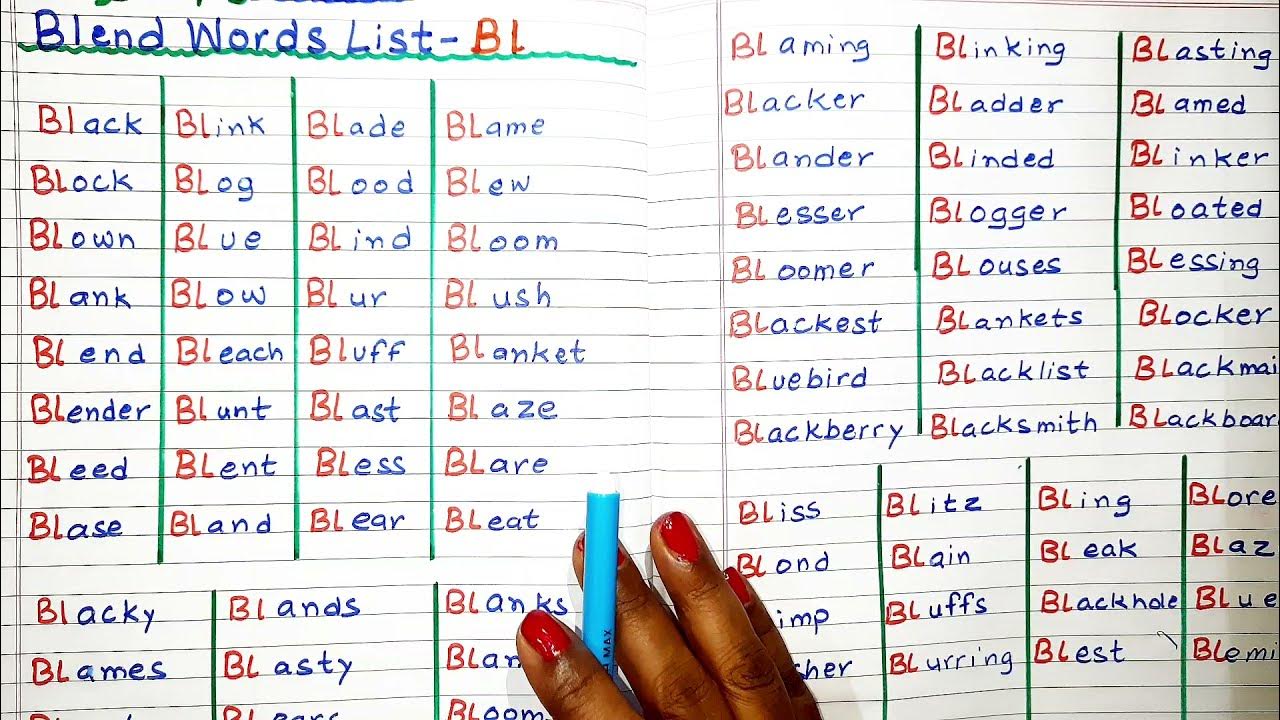 Blend Words List - Bl
Black BLink BLade BLame
BLock BLog BLood BLew
BLown BLue BLind BLoom
BLank BLow BLur BLush
BLend BLeach BLuff BLanket
BLender BLunt BLast BLaze
BLeed BLent BLess BLare
BLase BLand BLear BLeat
BLacky BLands BLanks
BLames BLasty
BLoom
BLaming BLinking BLasting
BLacker BLadder BLamed
BLander BLinded BLinker
BLesser BLogger BLoated
BLoomer BLouses BLessing
BLackest BLankets BLocker
BLuebird BLacklist BLackmai
BLackberry BLacksmith BLackboar
BLiss BLitz BLing BLore
BLond BLain BLeak BLaz
imp BLuffs BLackhole BLue
sher BLurring BLest BLemi